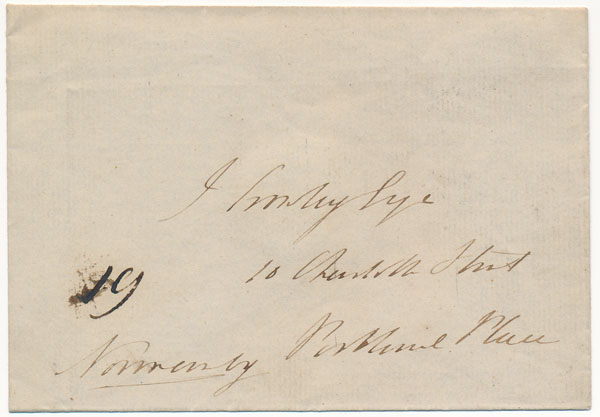 J Crosby Esqe
10 Charlotte Street
19
Portland Place
Normanby